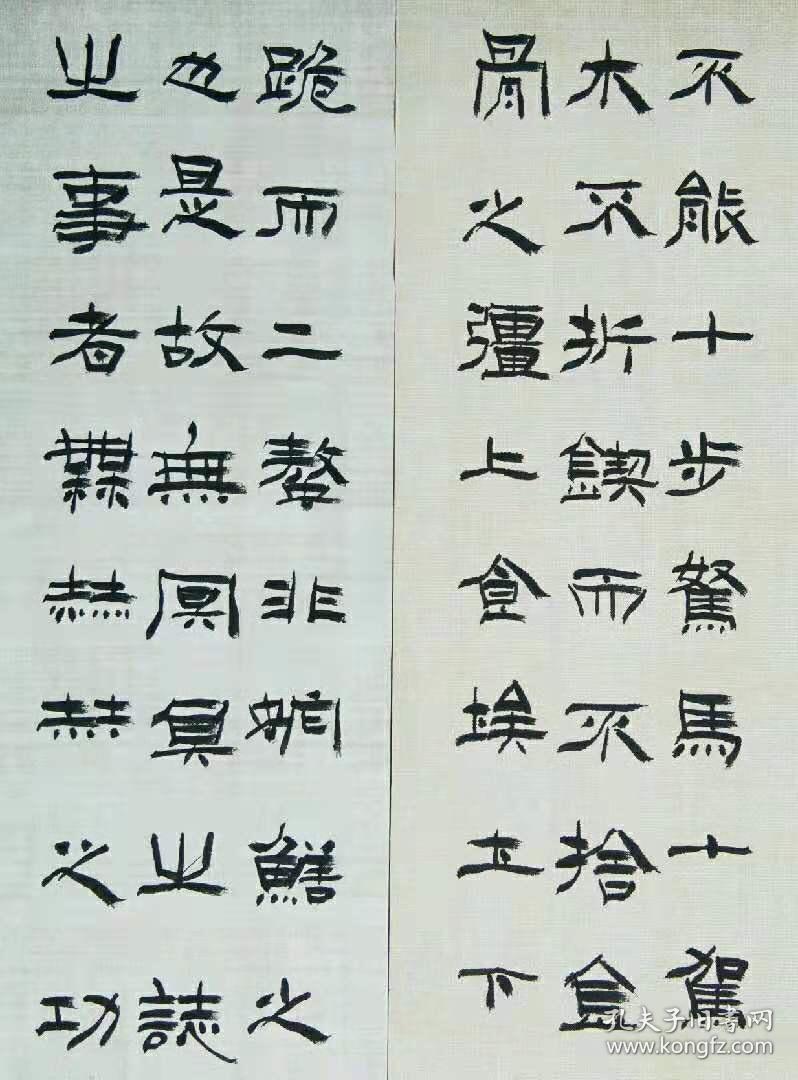 不能十步駑馬十駕
木不折鍥而不捨金
骨之彊上食埃土下
跪而二螯非蛇鱔之
也是故無冥冥之誌
之事者無赫赫之功
孔夫子旧书网
www.kongfz.com